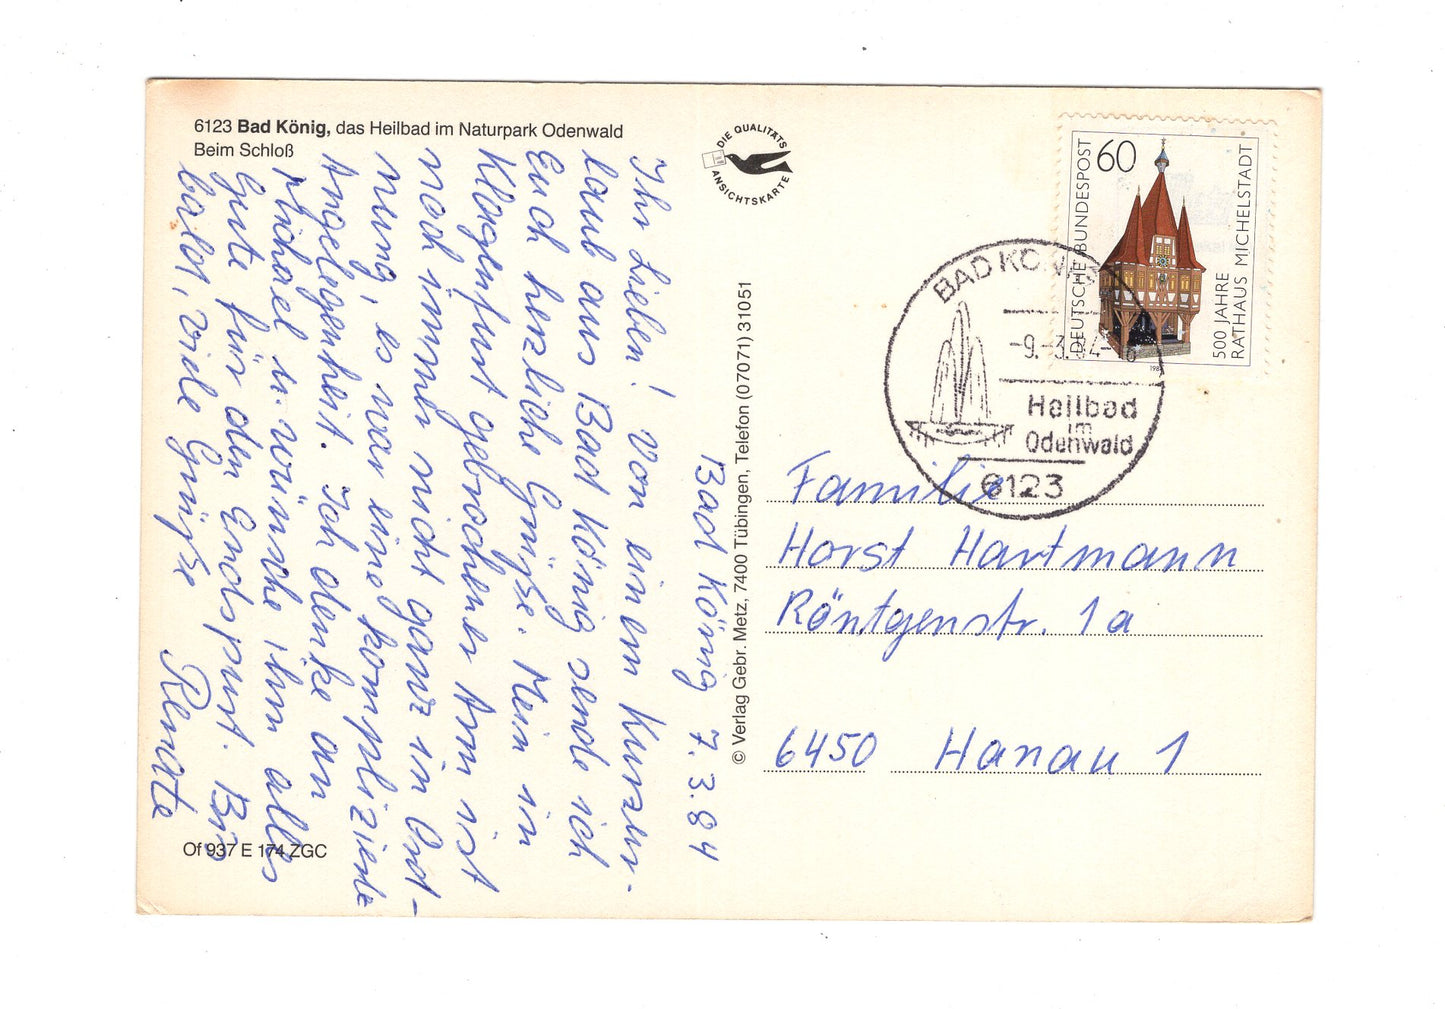 6123 Bad König, das Heilbad im Naturpark Odenwald
Beim Schloß
DIE QUALITÄTS
ANSICHTSKARTE
Bad König 7.3.84
Ihr Lieben! Von einem Kurzur-
laub aus Bad König sende ich
Euch herzliche Grüße. Mein in
Klagenfurt gebrochener Arm ist
noch immer nicht ganz in Ord-
nung, es war eine komplizierte
Angelegenheit. Ich denke an
Michael u. wünsche ihm alles
Gute für den Endspurt. Bis
bald, viele Grüße
Renate
Of 937 E 174 ZGC
© Verlag Gebr. Metz, 7400 Tübingen, Telefon (07071) 31051
DEUTSCHE BUNDESPOST
60
500 JAHRE
RATHAUS MICHELSTADT
1984
BAD KÖNIG
-9.-3.84-
Heilbad
im
Odenwald
6123
Familie
Horst Hartmann
Röntgenstr. 1a
6450 Hanau 1